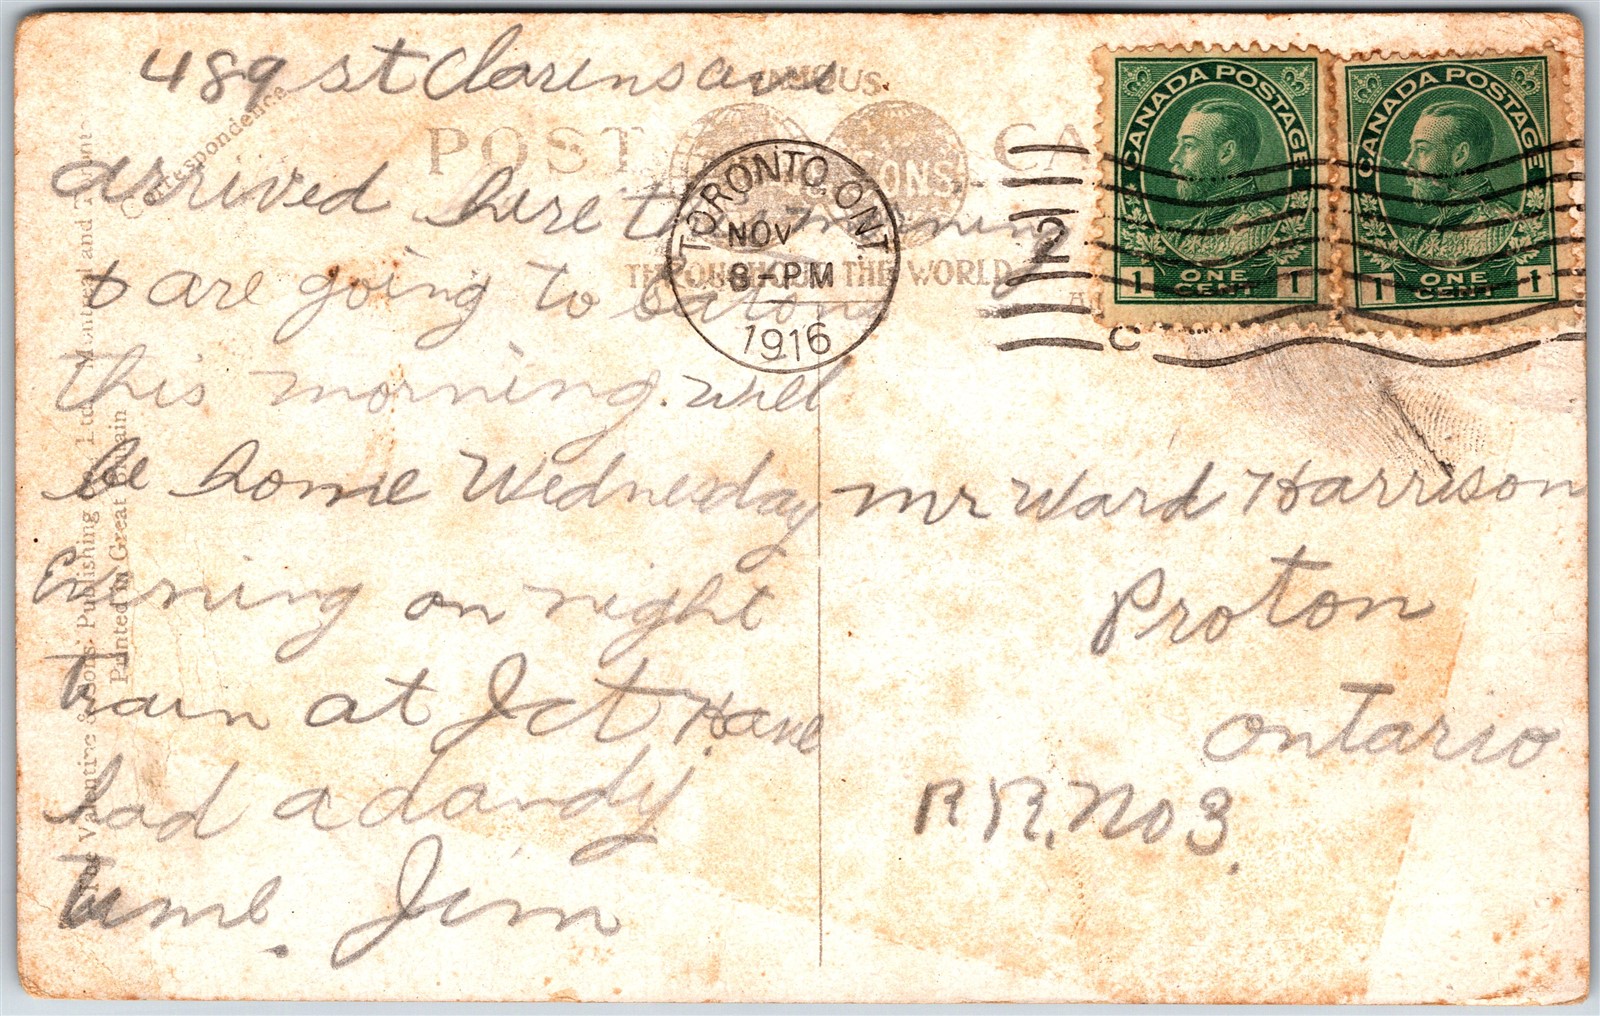 489 St Clarens ave
arrived here this morning
& are going to Eatons
this morning. will
be home Wednesday
Evening on night
train at Jct Have
had a dandy
time. Jim
Mr Ward Harrison
Proton
Ontario
R.R. No 3.
FAMOUS
POST CA
SONS'
THROUGHOUT THE WORLD
Correspondence
The Valentine & Sons' Publishing Co., Ltd., Montreal and Toronto
Printed in Great Britain
TORONTO, ONT.
NOV
8-PM
1916
2
C
CANADA POSTAGE
1 ONE CENT 1
CANADA POSTAGE
1 ONE CENT 1